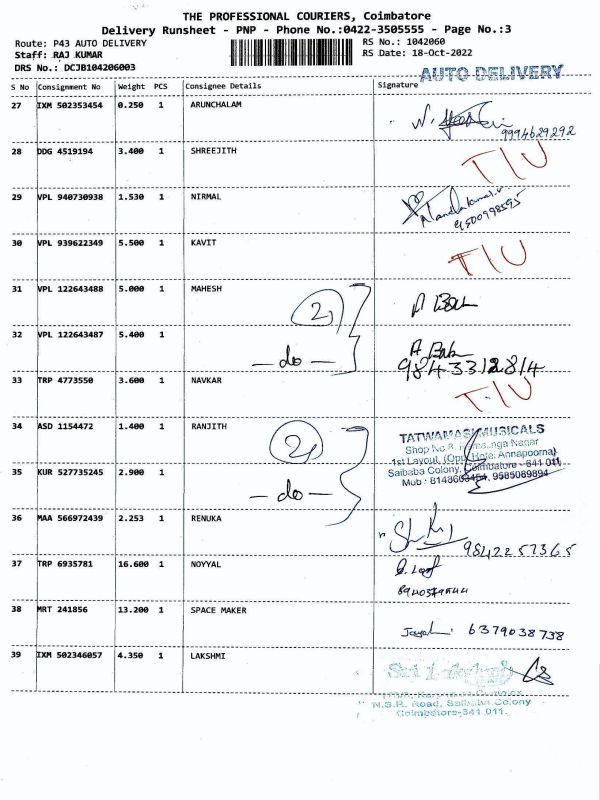 THE PROFESSIONAL COURIERS, Coimbatore
Delivery Runsheet - PNP - Phone No.:0422-3505555 - Page No.:3
Route: P43 AUTO DELIVERY RS No.: 1042060
Staff: RAJ KUMAR RS Date: 18-Oct-2022
DRS No.: DCJB104206003
AUTO DELIVERY
S No Consignment No Weight PCS Consignee Details Signature
27 IXM 502353454 0.250 1 ARUNCHALAM
9994629292
28 DDG 4519194 3.400 1 SHREEJITH T/U
29 VPL 940730938 1.530 1 NIRMAL
9500998595
30 VPL 939622349 5.500 1 KAVIT T/U
31 VPL 122643488 5.000 1 MAHESH
2
32 VPL 122643487 5.400 1
- do - 9843312814
33 TRP 4773550 3.600 1 NAVKAR T/U
34 ASD 1154472 1.400 1 RANJITH
2
TATWAMASI MUSICALS
Shop No 8, Nagar
1st Layout, (Opp. Hotel Annapoorna)
Saibaba Colony, Coimbatore - 641 011
35 KUR 527735245 2.900 1
Mob : 9585089894
- do -
36 MAA 566972439 2.253 1 RENUKA
9842257365
37 TRP 6935781 16.600 1 NOYYAL
38 MRT 241856 13.200 1 SPACE MAKER
6379038738
39 IXM 502346057 4.350 1 LAKSHMI
Sri
N.S.R. Road, Saibaba Colony
Coimbatore-641 011.